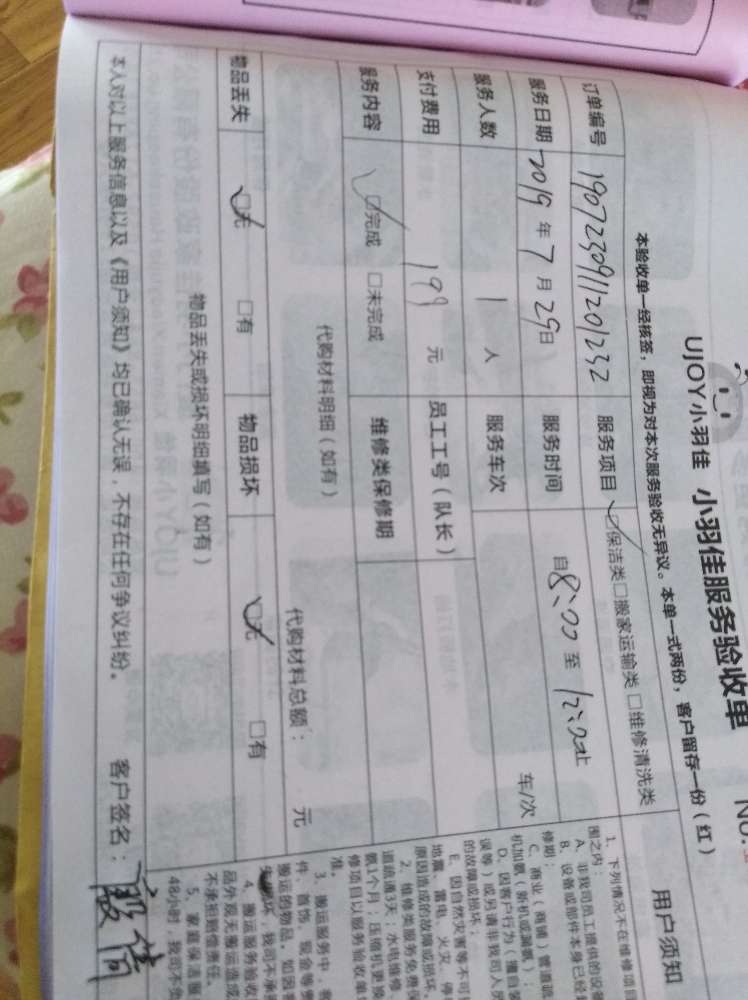 UJOY小羽佳 小羽佳服务验收单
No.
本验收单一经核签，即视为对本次服务验收无异议。本单一式两份，客户留存一份（红）
订单编号 1907230911201232 服务项目 ☑保洁类□搬家运输类 □维修清洗类
服务日期 2019年7月29日 服务时间 自8:00至12:00止
服务人数 1人 服务车次 车/次
支付费用 199元 员工工号（队长）
服务内容 ☑完成 □未完成 维修类保修期
代购材料明细（如有） 代购材料总额： 元
物品丢失 ☑无 □有 物品损坏 ☑无 □有
物品丢失或损坏明细填写（如有）
本人对以上服务信息以及《用户须知》均已确认无误，不存在任何争议纠纷。 客户签名：
用户须知
1、下列情况不在维修项目
围之内：
A、非我司员工提供的设
B、设备或部件本身已经
修期；
C、商业（商铺）管道疏
机加氨（新机或漏氨）；
D、因客户行为（擅自
误等）或另请非我司人员
的故障或损坏；
E、因自然灾害等不可
地震、雷电、火灾、停
原因造成的故障或损坏。
2、维修类服务免费保
道疏通3天；水电维修、
氨1个月；压缩机更换
修项目以服务验收单
准。
3、搬运服务中，客
件、首饰、现金等贵
搬运的物品，如因客
失损坏，我司不承担
4、搬运服务验收
品外观无搬运造成
不承担赔偿责任。
5、家庭保洁服
48小时，我司不负